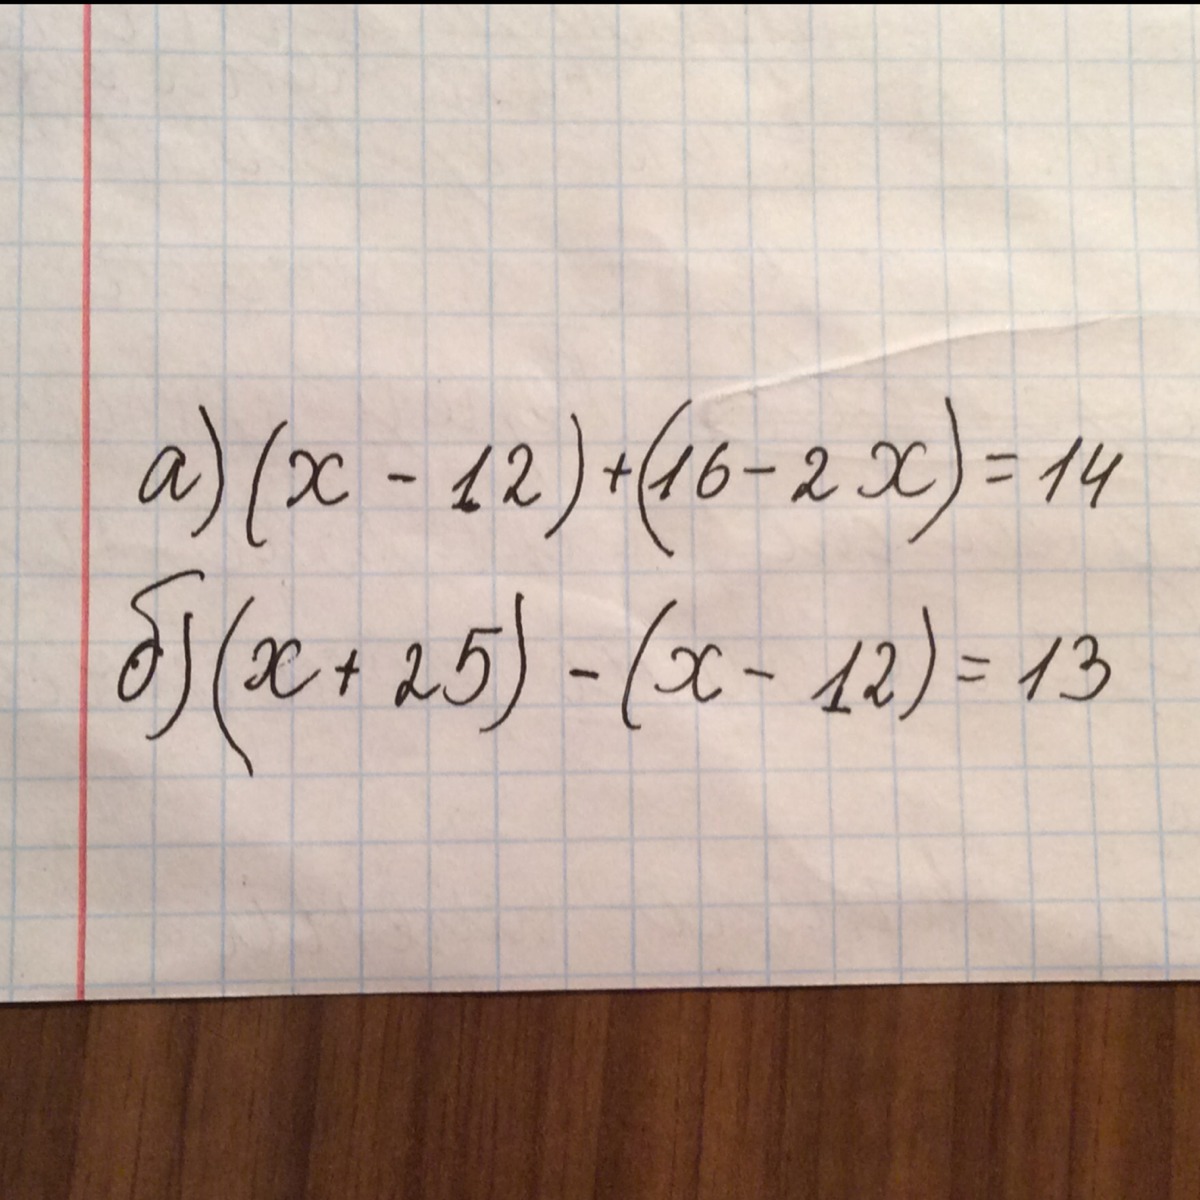 а) (x - 12) + (16 - 2x) = 14
б) (x + 25) - (x - 12) = 13